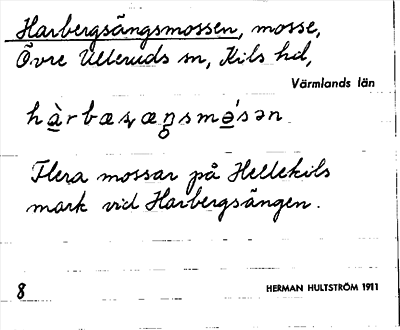 Harbergsängsmossen, mosse,
Övre Ulleruds sn, Kils hd,
Värmlands län
Flera mossar på Hellekils
mark vid Harbergsängen.
8
HERMAN HULTSTRÖM 1911